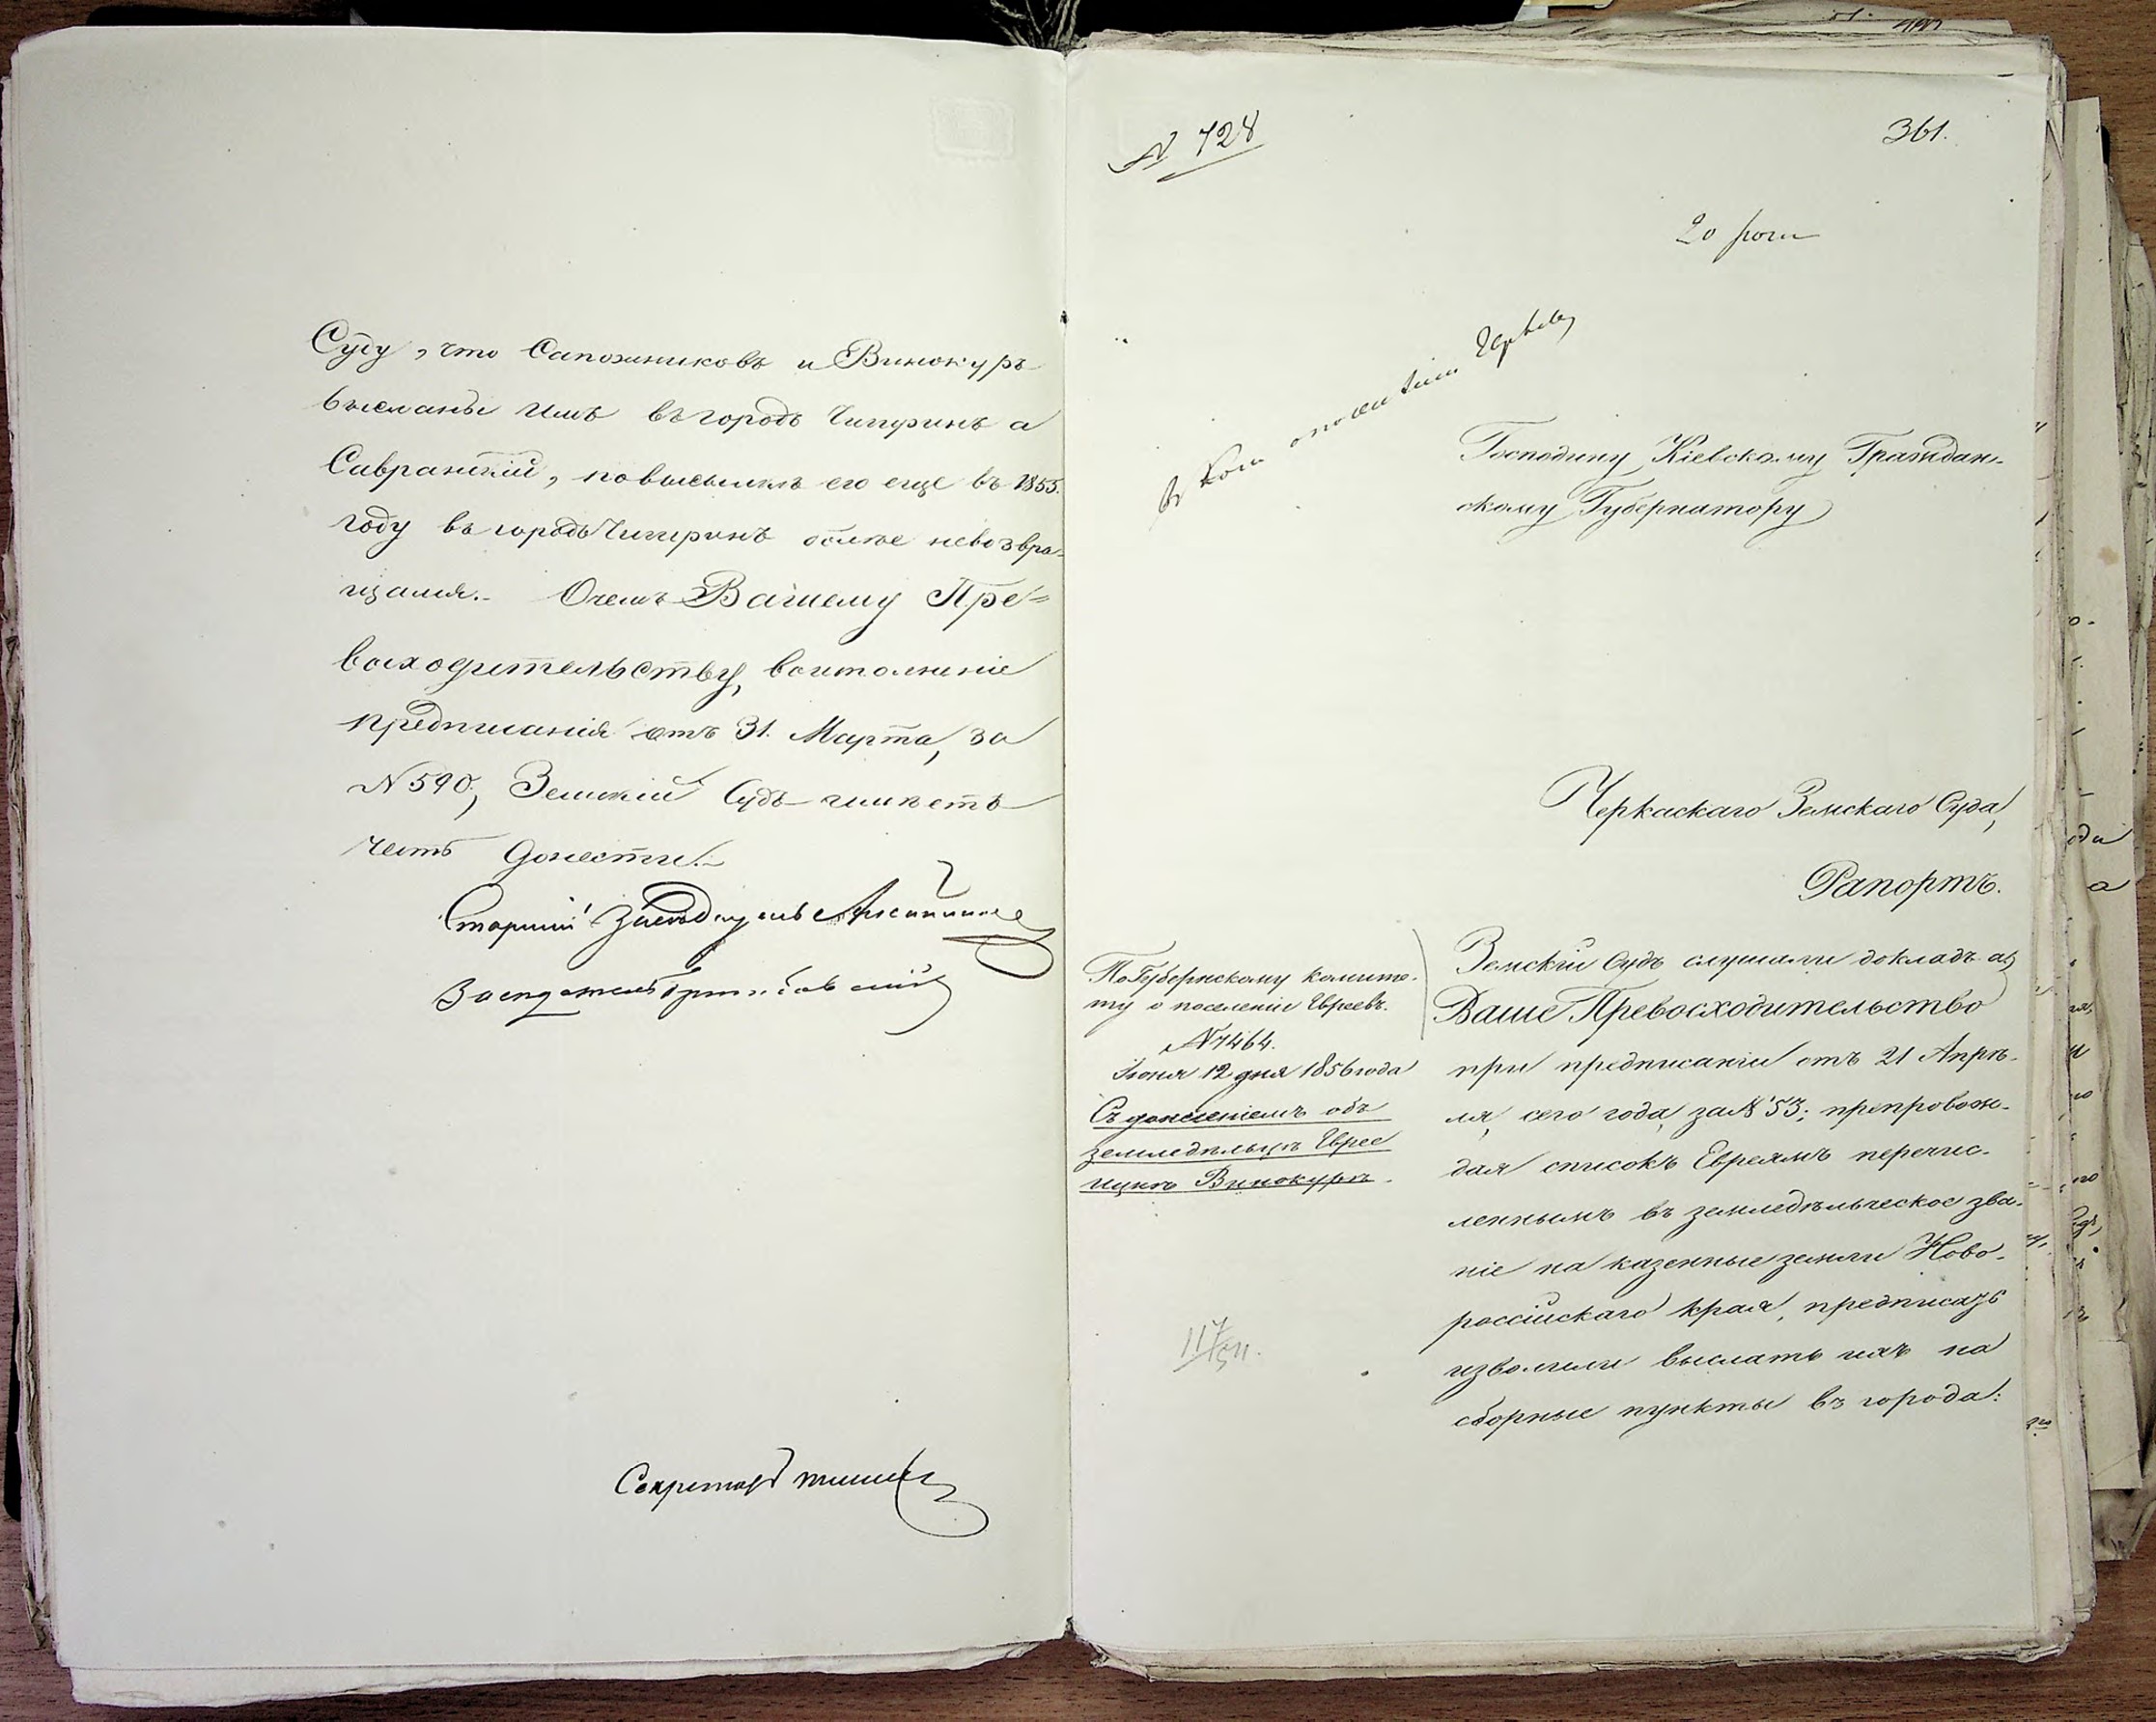 Суду, что Сапожниковъ и Винокуръ
высланы имъ въ городъ Чигиринъ а
Савранскій, по высылкѣ его еще въ 1855
году въ городъ Чигиринъ болѣе невозвра-
щался. О чемъ Вашему Пре-
восходительству, во исполненіе
предписанія отъ 31. Марта, за
N 590, Земскій Судъ имѣетъ
честь донести.
Старшій Засѣдатель
Засѣдатель
Секретарь
N 728
361.
20
въ Ком о поселеніи Евреевъ
Господину Кіевскому Граждан-
скому Губернатору
Черкаскаго Земскаго Суда,
Рапортъ.
По Губернскому комите-
ту о поселеніи Евреевъ.
N 7464.
Іюня 12 дня 1856 года
Съ донесеніемъ объ
земледѣльцѣ Еврее
Ицкѣ Винокурѣ.
Земскій Судъ слушали докладъ а,
Ваше Превосходительство
при предписаніи отъ 21 Апрѣ-
ля, сего года, за N 53; препровож-
дая списокъ Евреямъ перечис-
леннымъ въ земледѣльческое зва-
ніе на казенные земли Ново-
россійскаго края, предписать
изволили выслать ихъ на
сборные пункты въ города: